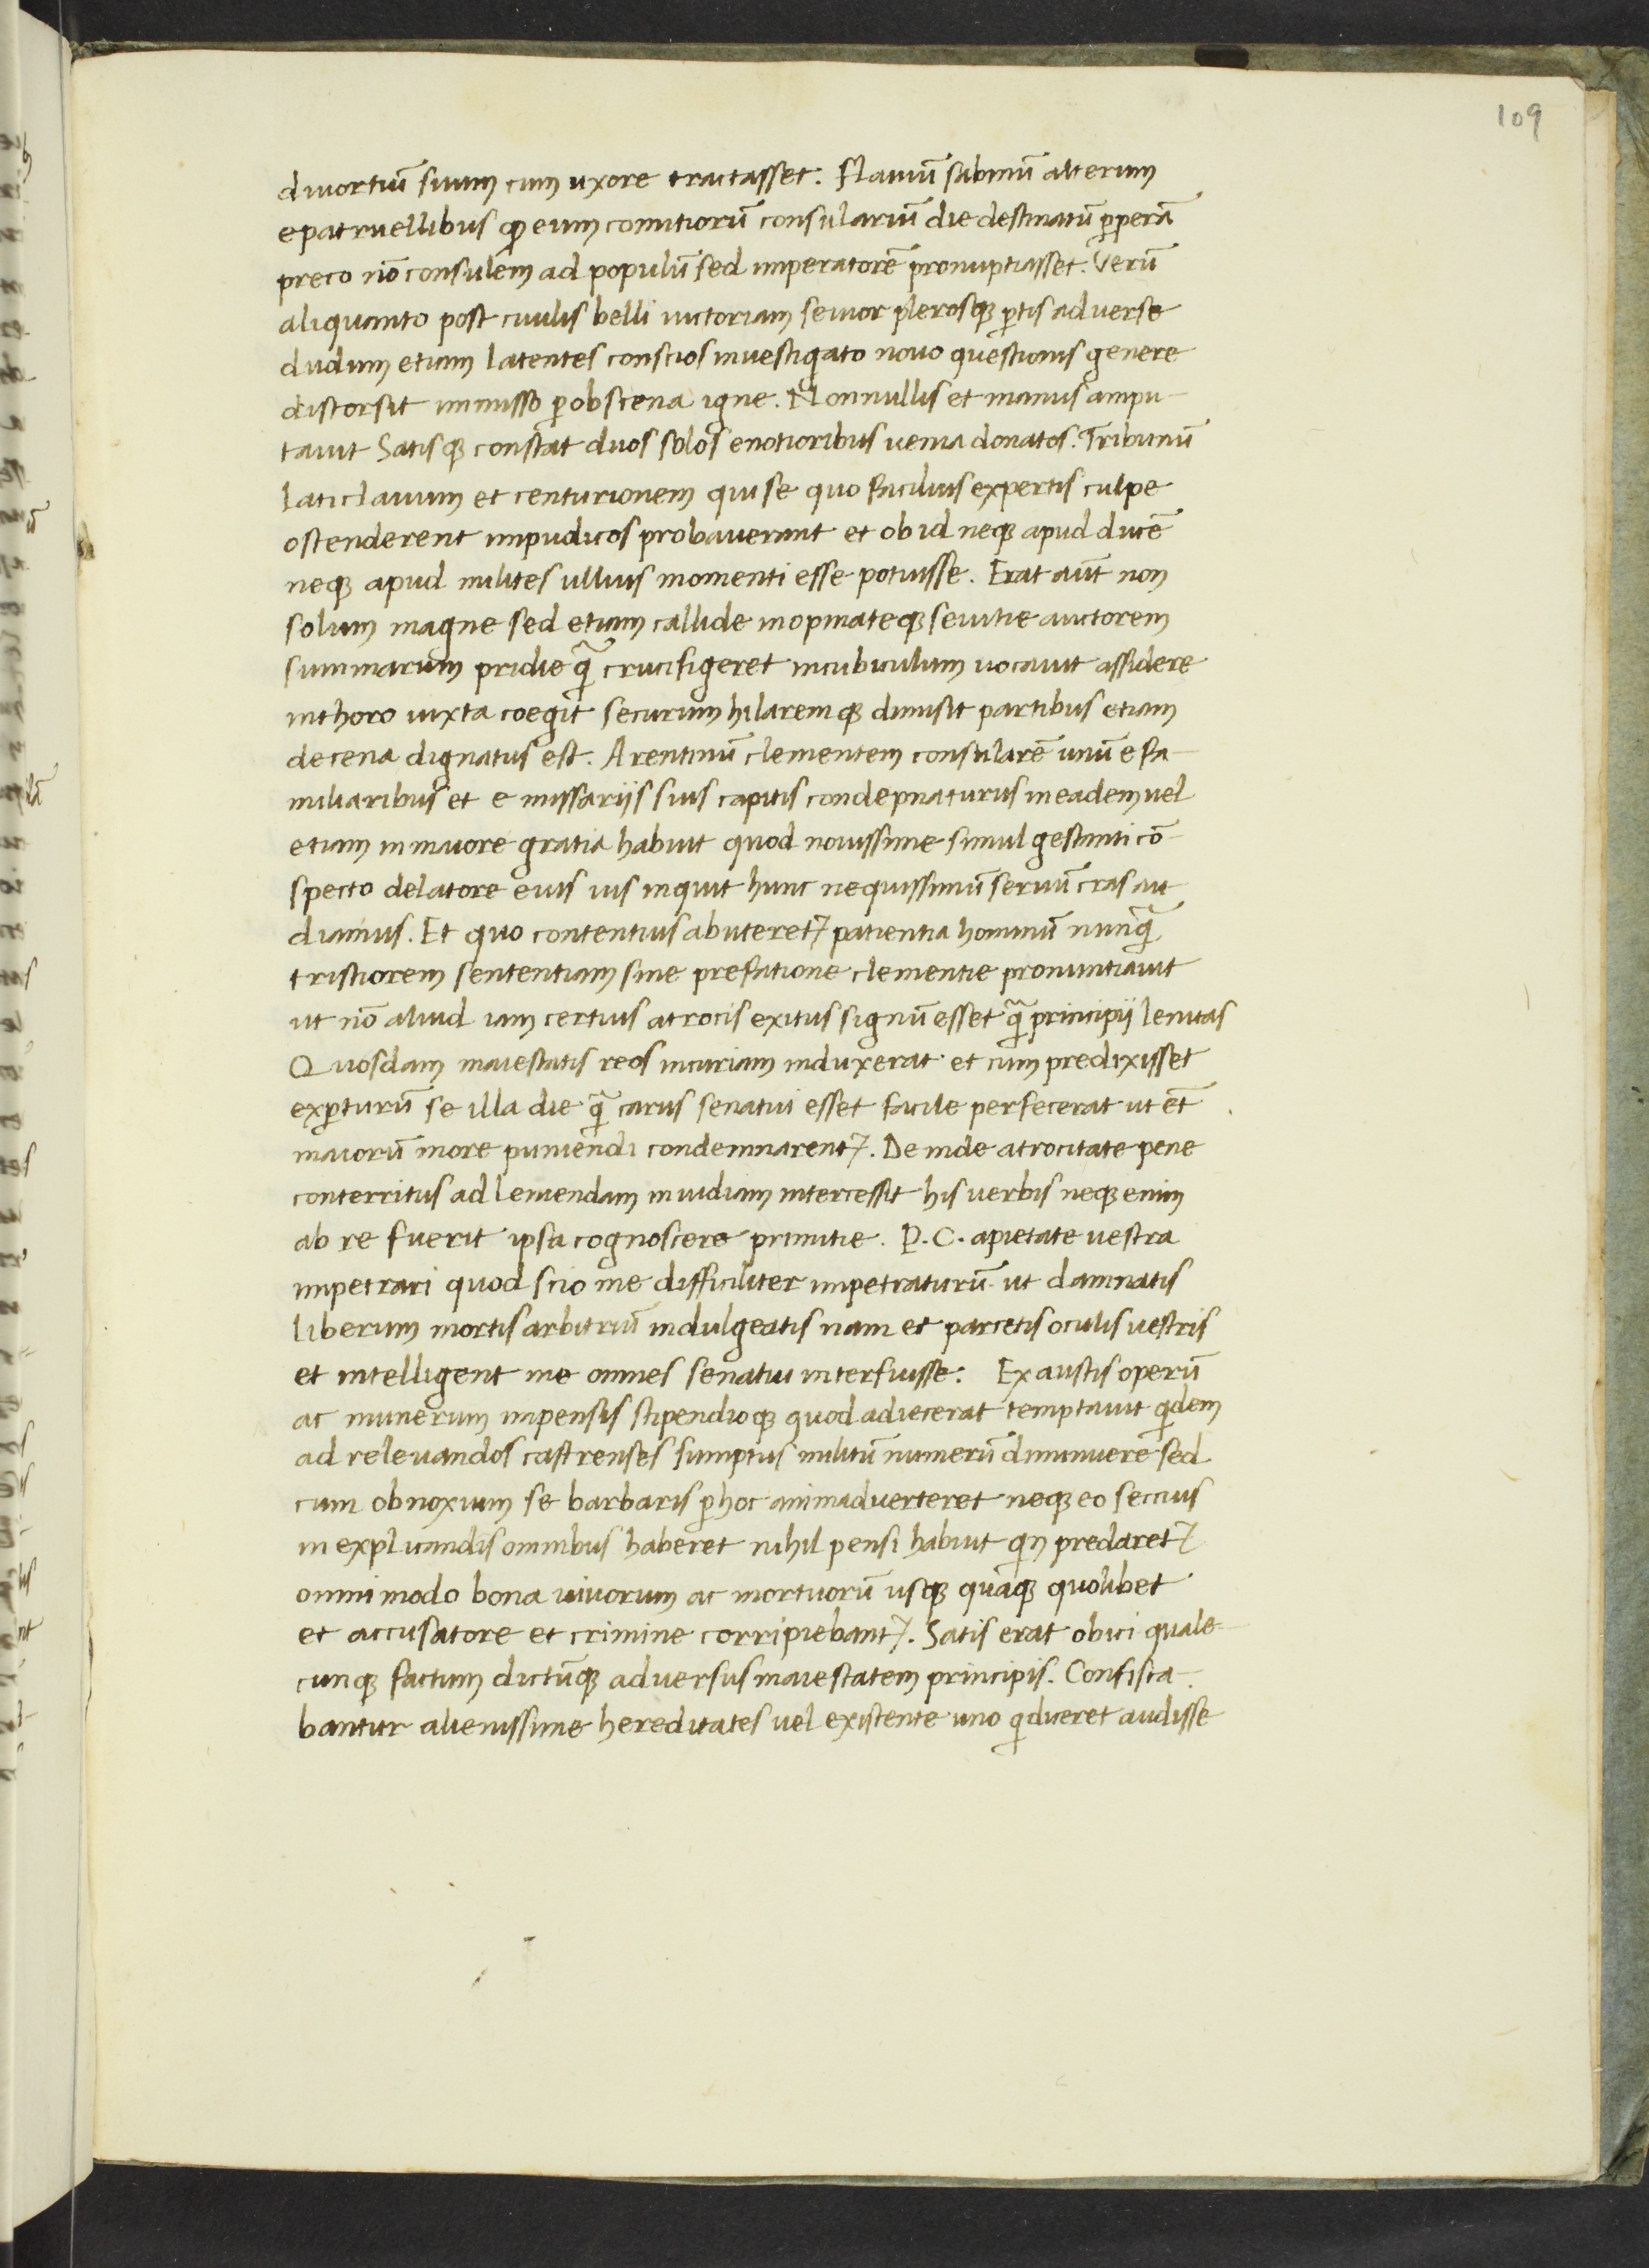 109
diuortiū suum cum uxore tractasset. Flauiū sabinū alterum
epatruellibus ꝙ eum comitiorū consulariū die destinatū ꝑperā
preco nō consulem ad populū sed imperatorē pronuptiasset. Verū
aliquanto post ciuilis belli uictoriam seuior plerosqꝫ ꝑtis aduerse
dudum etiam latentes conscios inuestigato nouo questionis genere
distorsit immisso ꝑ obscena igne. Nonnullis et manus ampu-
tauit Satisqꝫ constat duos solos enotioribus uenia donatos. Tribunū
laticlauium et centurionem qui se quo facilius expertis culpe
ostenderent impudicos probauerant et ob id neqꝫ apud ducē
neqꝫ apud milites ullius momenti esse potuisse. Erat aūt non
solum magne sed etiam callide inopinateqꝫ seuitie auctorem
summarum pridie q̄ crucifigeret incubiculum uocauit assidere
inthoro iuxta coegit securum hilaremqꝫ dimisit partibus etiam
decena dignatus est. Arentinū clementem consularē unū e fa-
miliaribus et e missariis suis capitis condepnaturus in eadem uel
etiam in maiore gratia habuit quod nouissime simul gestanti cō-
specto delatore eius uis inquit hunc nequissimū seruū cras au-
diamus. Et quo contentius abuteretꝛ patientia hominū nunq̄
tristiorem sententiam sine prefatione clementie pronuntiauit
ut nō aliud iam certius atrocis exitus signū esset q̄ principii lenitas
Quosdam maiestatis reos incuriam induxerat et cum predixisset
exꝑturū se illa die q̄ carus senatui esset facile perfecerat ut ēt
maiorū more puniendi condemnarentꝛ. De inde atrocitate pene
conterritus ad leniendam inuidiam intercessit his uerbis neqꝫ enim
ab re fuerit ipsa cognoscere primitie. P. C. apietate uestra
impetrari quod scio me difficiliter impetraturū ut damnatis
liberum mortis arbitriū indulgeatis nam et parcetis oculis uestris
et intelligent me omnes senatui interfuisse: Exaustis operū
ac munerum impensis stipendioqꝫ quod adiecerat temptauit qdem
ad releuandos castrenses sumptus militū numerū diminuere sed
cum obnoxium se barbaris ꝑ hoc animaduerteret neqꝫ eo seccius
in explicandis omnibus haberet nihil pensi habuit qn predaretꝛ
omni modo bona uiuorum ac mortuorū usqꝫ quaqꝫ quolibet
et accusatore et crimine corripiebantꝛ. Satis erat obici quale-
cunqꝫ factum dictūqꝫ aduersus maiestatem principis. Confisca-
bantur alienissime hereditates uel existente uno q diceret audisse